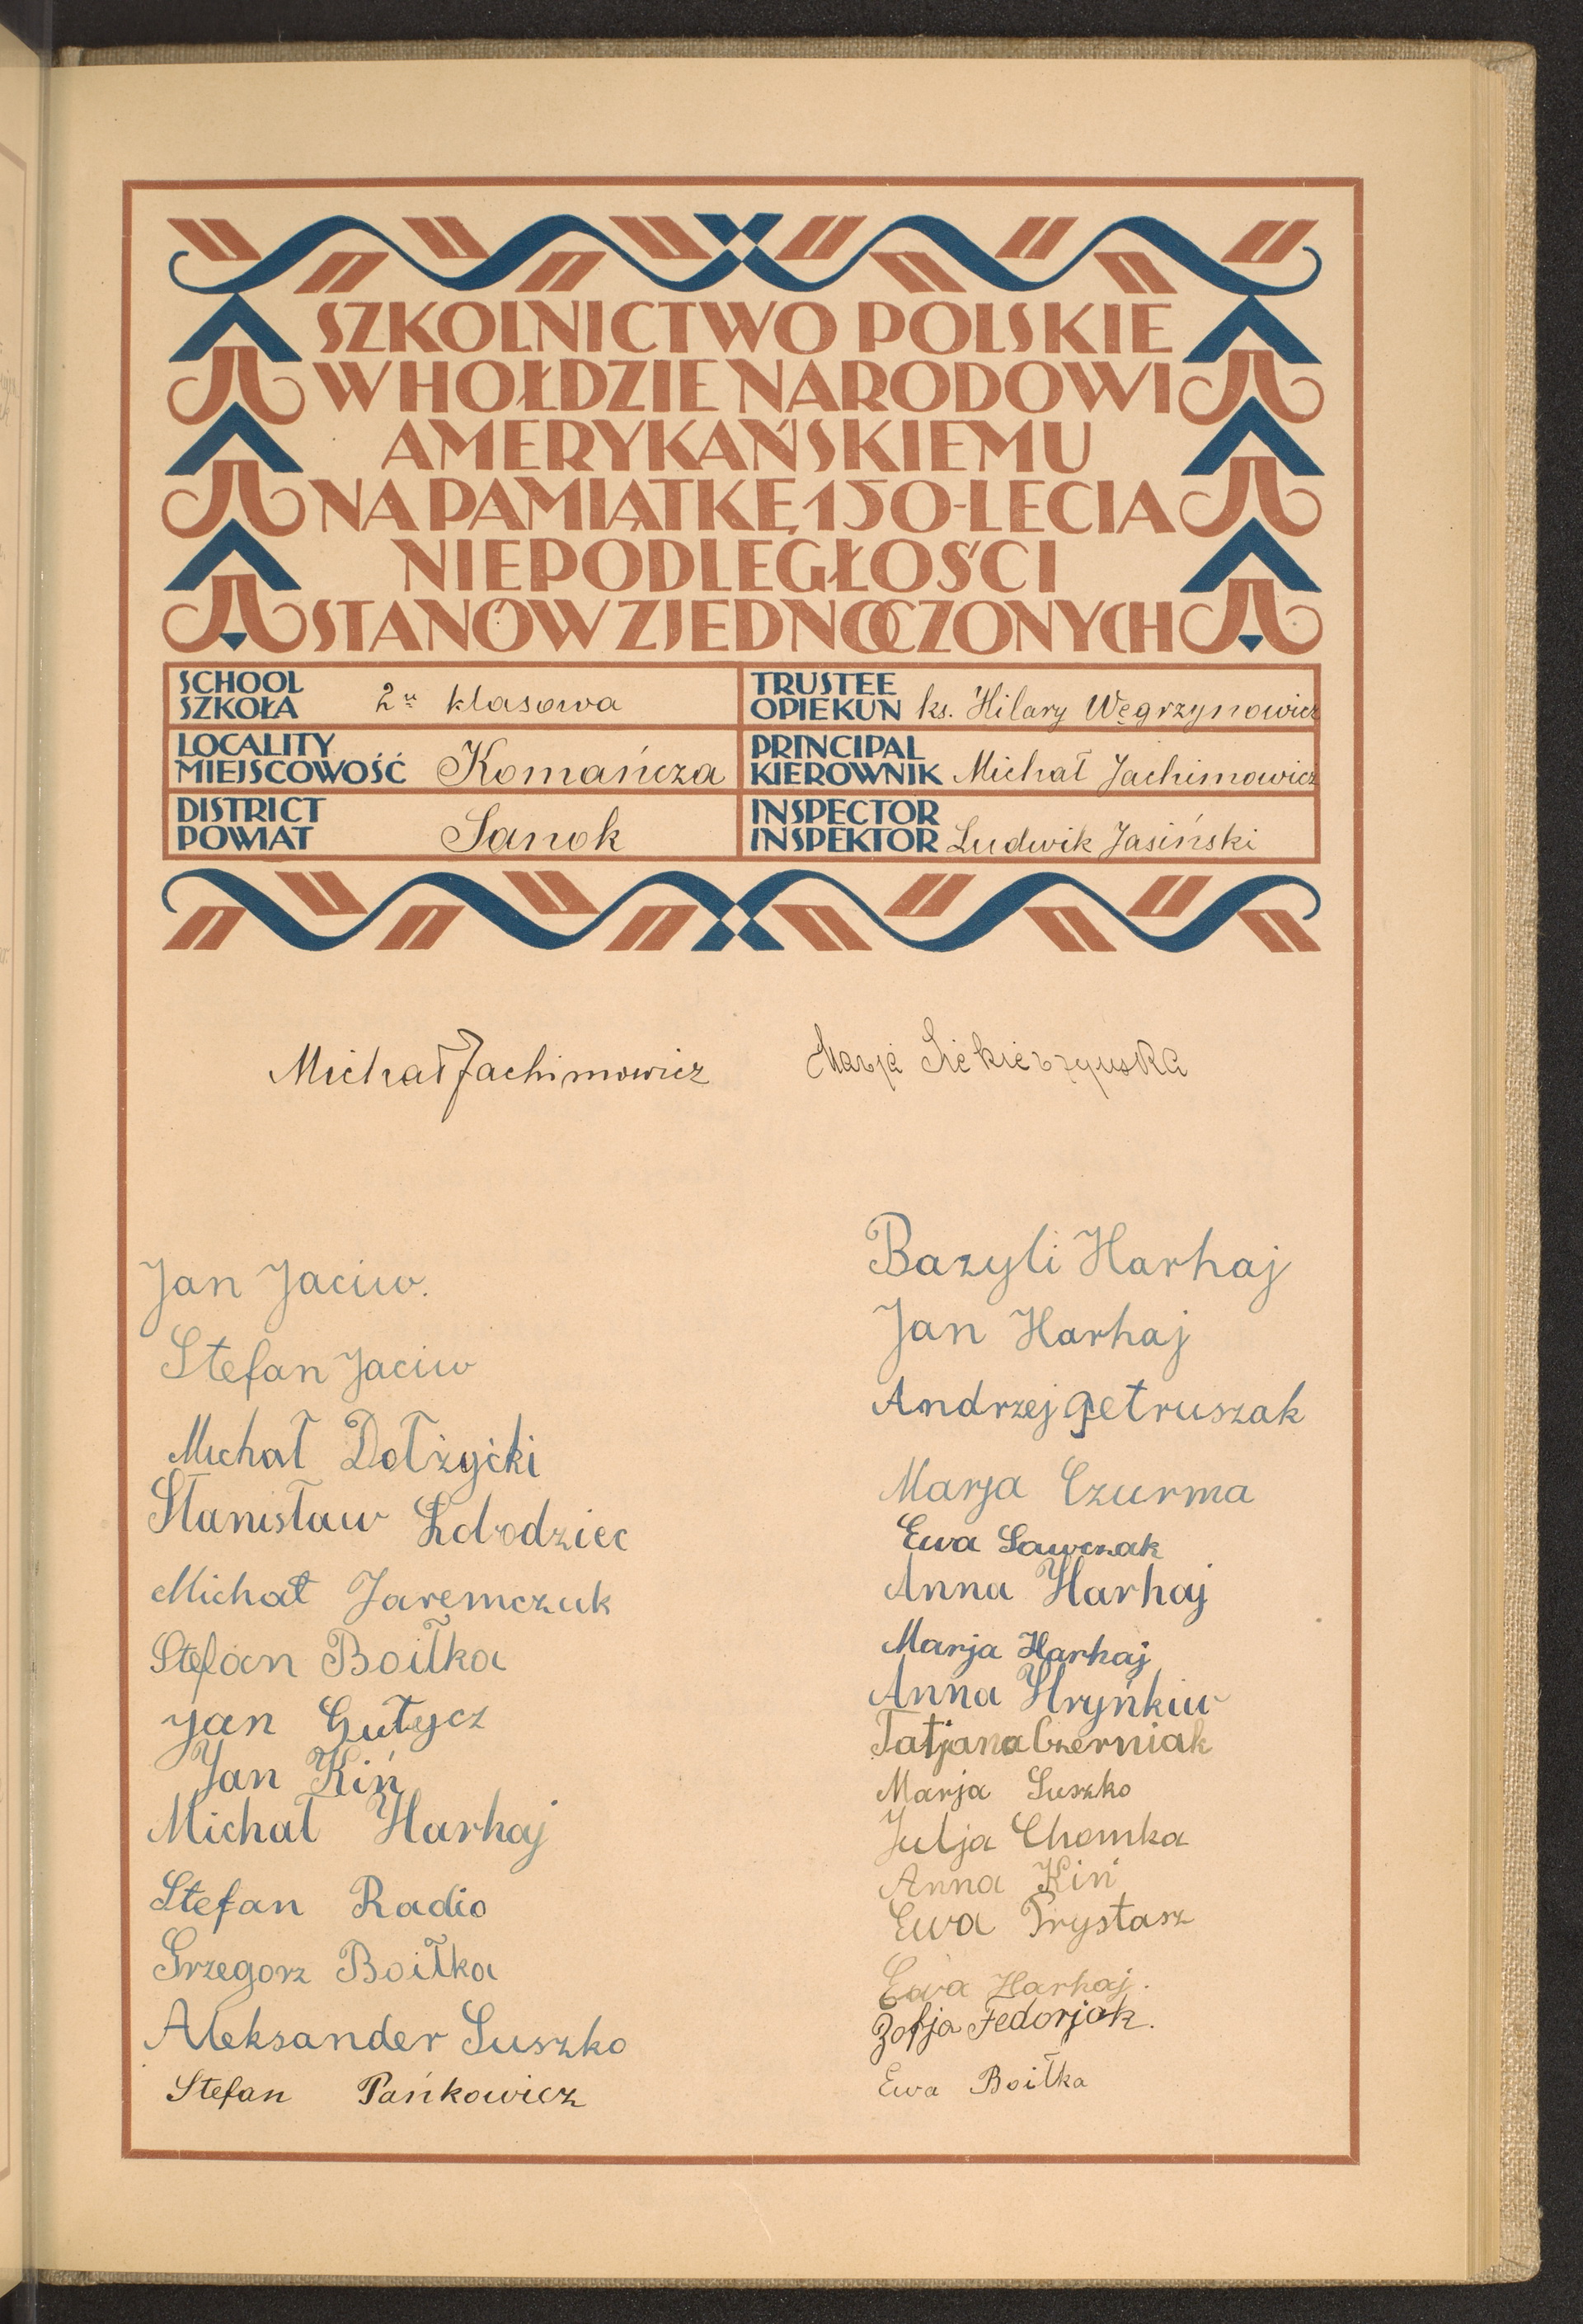 SZKOLNICTWO POLSKIE
W HOŁDZIE NARODOWI
AMERYKAŃSKIEMU
NA PAMIĄTKĘ 150-LECIA
NIEPODLEGŁOŚCI
STANÓW ZJEDNOCZONYCH
SCHOOL
SZKOŁA 2u klasowa
TRUSTEE
OPIEKUN ks. Hilary Węgrzynowicz
LOCALITY
MIEJSCOWOŚĆ Komańcza
PRINCIPAL
KIEROWNIK Michał Jachimowicz
DISTRICT
POWIAT Sanok
INSPECTOR
INSPEKTOR Ludwik Jasiński
Michał Jachimowicz
Marja Siekierzyńska
Jan Jaciw.
Stefan Jaciw
Michał Dołżycki
Stanisław
Michał Jaremczuk
Stefan Boiłka
Jan Gułycz
Jan Kiń
Michał Harhaj
Stefan Radio
Grzegorz Boiłka
Aleksander Suszko
Stefan Pańkowicz
Bazyli Harhaj
Jan Harhaj
Andrzej Petruszak
Marja Czurma
Ewa Sawczak
Anna Harhaj
Marja Harhaj
Anna Hryńkiw
Tatjana Czerniak
Marja Suszko
Julja Chomka
Anna Kiń
Ewa Prystasz
Ewa Harhaj.
Zofja Fedorjak.
Ewa Boiłka